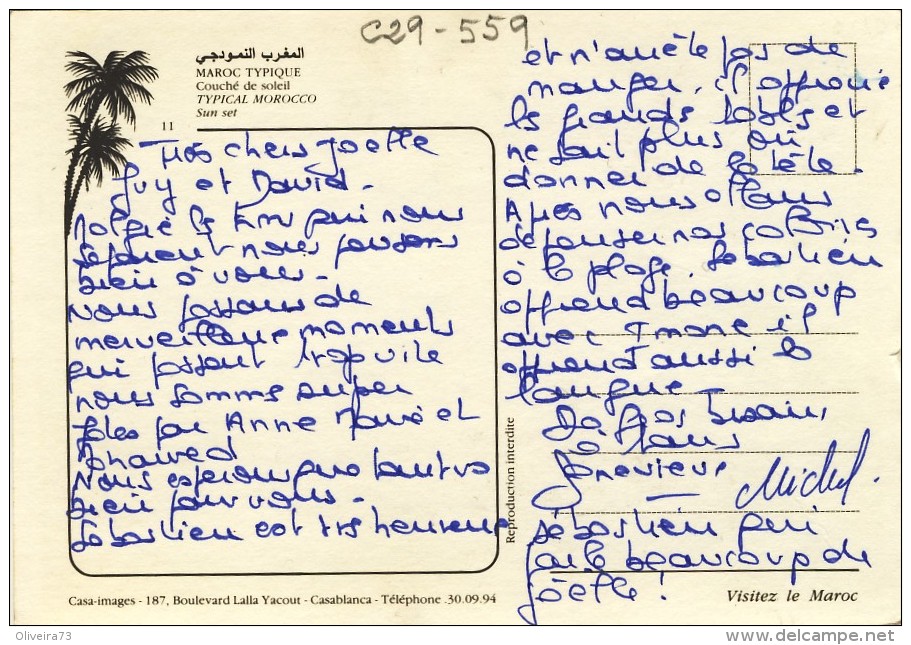 C29-559
المغرب النموذجي
MAROC TYPIQUE
Couché de soleil
TYPICAL MOROCCO
Sun set
11
Très chers Joelle
Guy et David.
Malgré les Kms qui nous
séparent nous pensons
bien à vous.
Nous passons de
merveilleux moments
qui passent trop vite
nous sommes super
gatés par Anne Marie et
Mohamed
Nous espérons que tout va
bien pour vous.
Sébastien est très heureux
et n'arrête pas de
manger, il apprécie
les grands tables et
ne sait plus où
donner de la tête.
Après nous allons
dépenser nos calories
à la plage. Sébastien
apprend beaucoup
avec Imane il
apprend aussi la
langue
De gros bisous
à tous
Geneviève Michel.
Sébastien qui
parle beaucoup de
Joëlle !
Reproduction interdite
Casa-images - 187, Boulevard Lalla Yacout - Casablanca - Téléphone .30.09.94
Visitez le Maroc
Oliveira73
www.delcampe.net